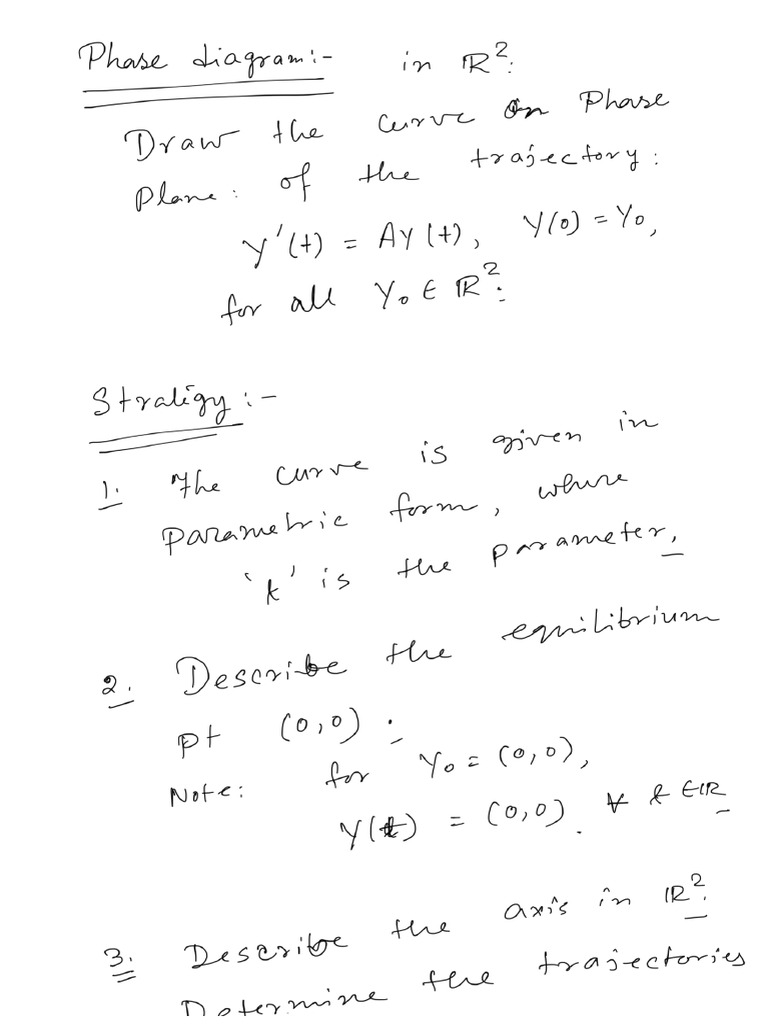 Phase diagram:- in ℝ²:
Draw the curve on Phase
Plane: of the trajectory:
Y'(t) = AY(t), Y(0) = Y₀,
for all Y₀ ∈ ℝ².
Stratigy:-
1. The curve is given in
Parametric form, where
't' is the parameter.
2. Describe the equilibrium
pt (0,0).
Note: for Y₀ = (0,0),
Y(t) = (0,0). ∀ t ∈ ℝ
3. Describe the axis in ℝ².
Determine the trajectories